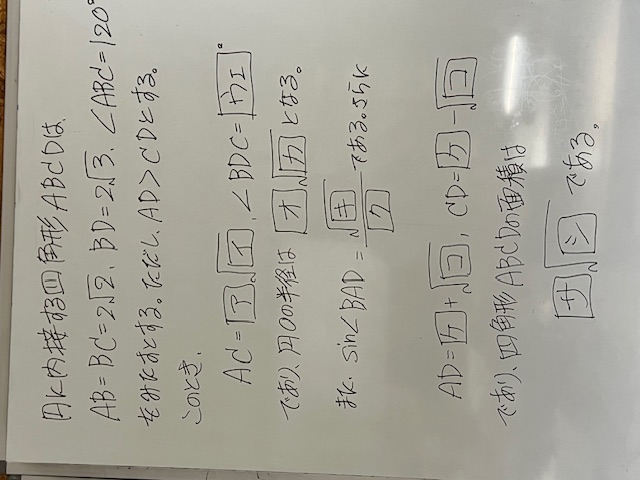 円に内接する四角形ABCDは、
AB=BC=2√2、BD=2√3、∠ABC=120°
をみたすとする。ただし、AD>CDとする。
このとき、
AC=ア√イ、∠BDC=ウエ°
であり、円Oの半径は オ√カ となる。
また、sin∠BAD=√キ/ク である。さらに
AD=ケ+√コ、CD=ケ-√コ
であり、四角形ABCDの面積は
サ√シ である。